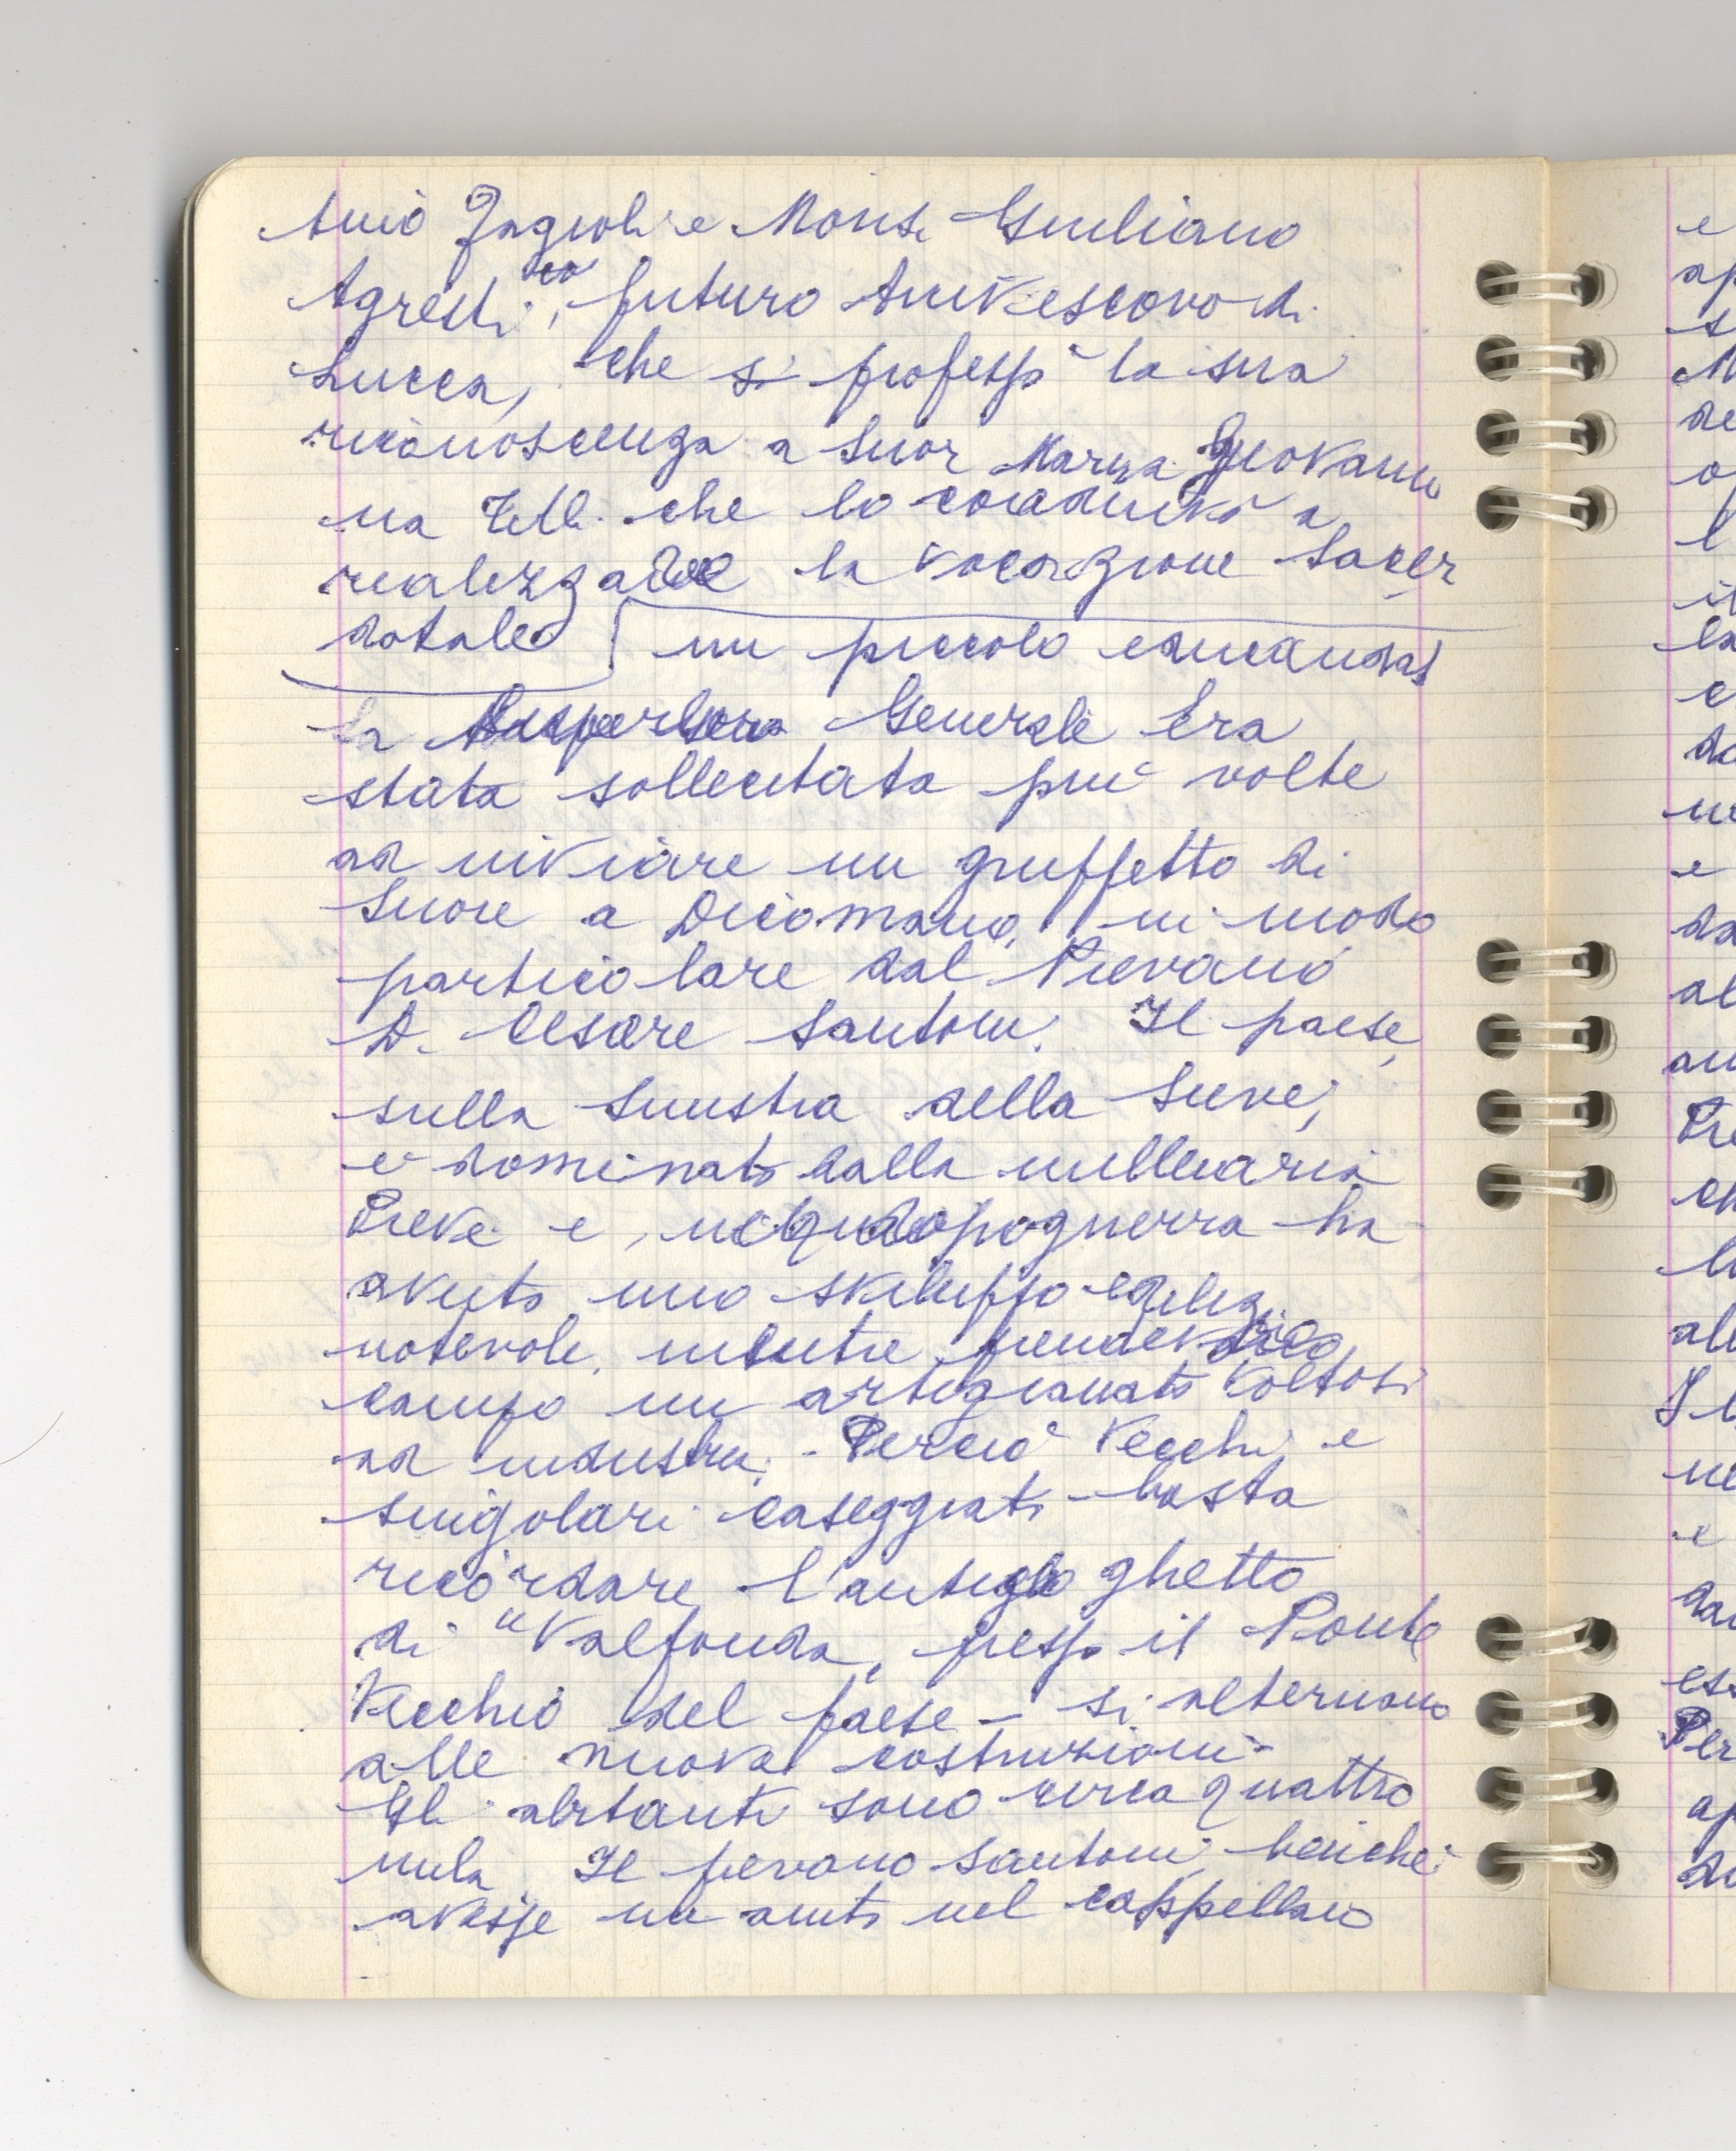 Zagnoli e Mons. Giuliano
Agresti, futuro Arcivescovo di
Lucca, che si professò la sua
riconoscenza a Suor Maria Giovan
na che lo coadiuvò a
realizzare la vocazione sacer
dotale un piccolo educandat
la Superiora Generale era
stata sollecitata più volte
ad inviare un gruppetto di
Suore a Dicomano, in modo
particolare dal Pievano
D. Cesare Santoni. Il paese,
sulla sinistra della Sieve,
è dominato dalla millenaria
Pieve e, nel dopoguerra ha
avuto uno sviluppo edilizio
notevole, mentre prendeva
campo un artigianato voltosi
ad industria. Perciò vecchi e
singolari caseggiati - basta
ricordare l'antico ghetto
di "Valfonda, presso il Ponte
Vecchio del paese - si alternano
alle nuove costruzioni.
Gli abitanti sono circa quattro
mila. Il pievano Santoni, benché
avesse un aiuto nel cappellano
e
ap
s
M
de
o
l
il
la
e
da
ne
e
da
al
au
Pie
ch
la
all
Il
ne
e
dal
ess
Per
ap
du